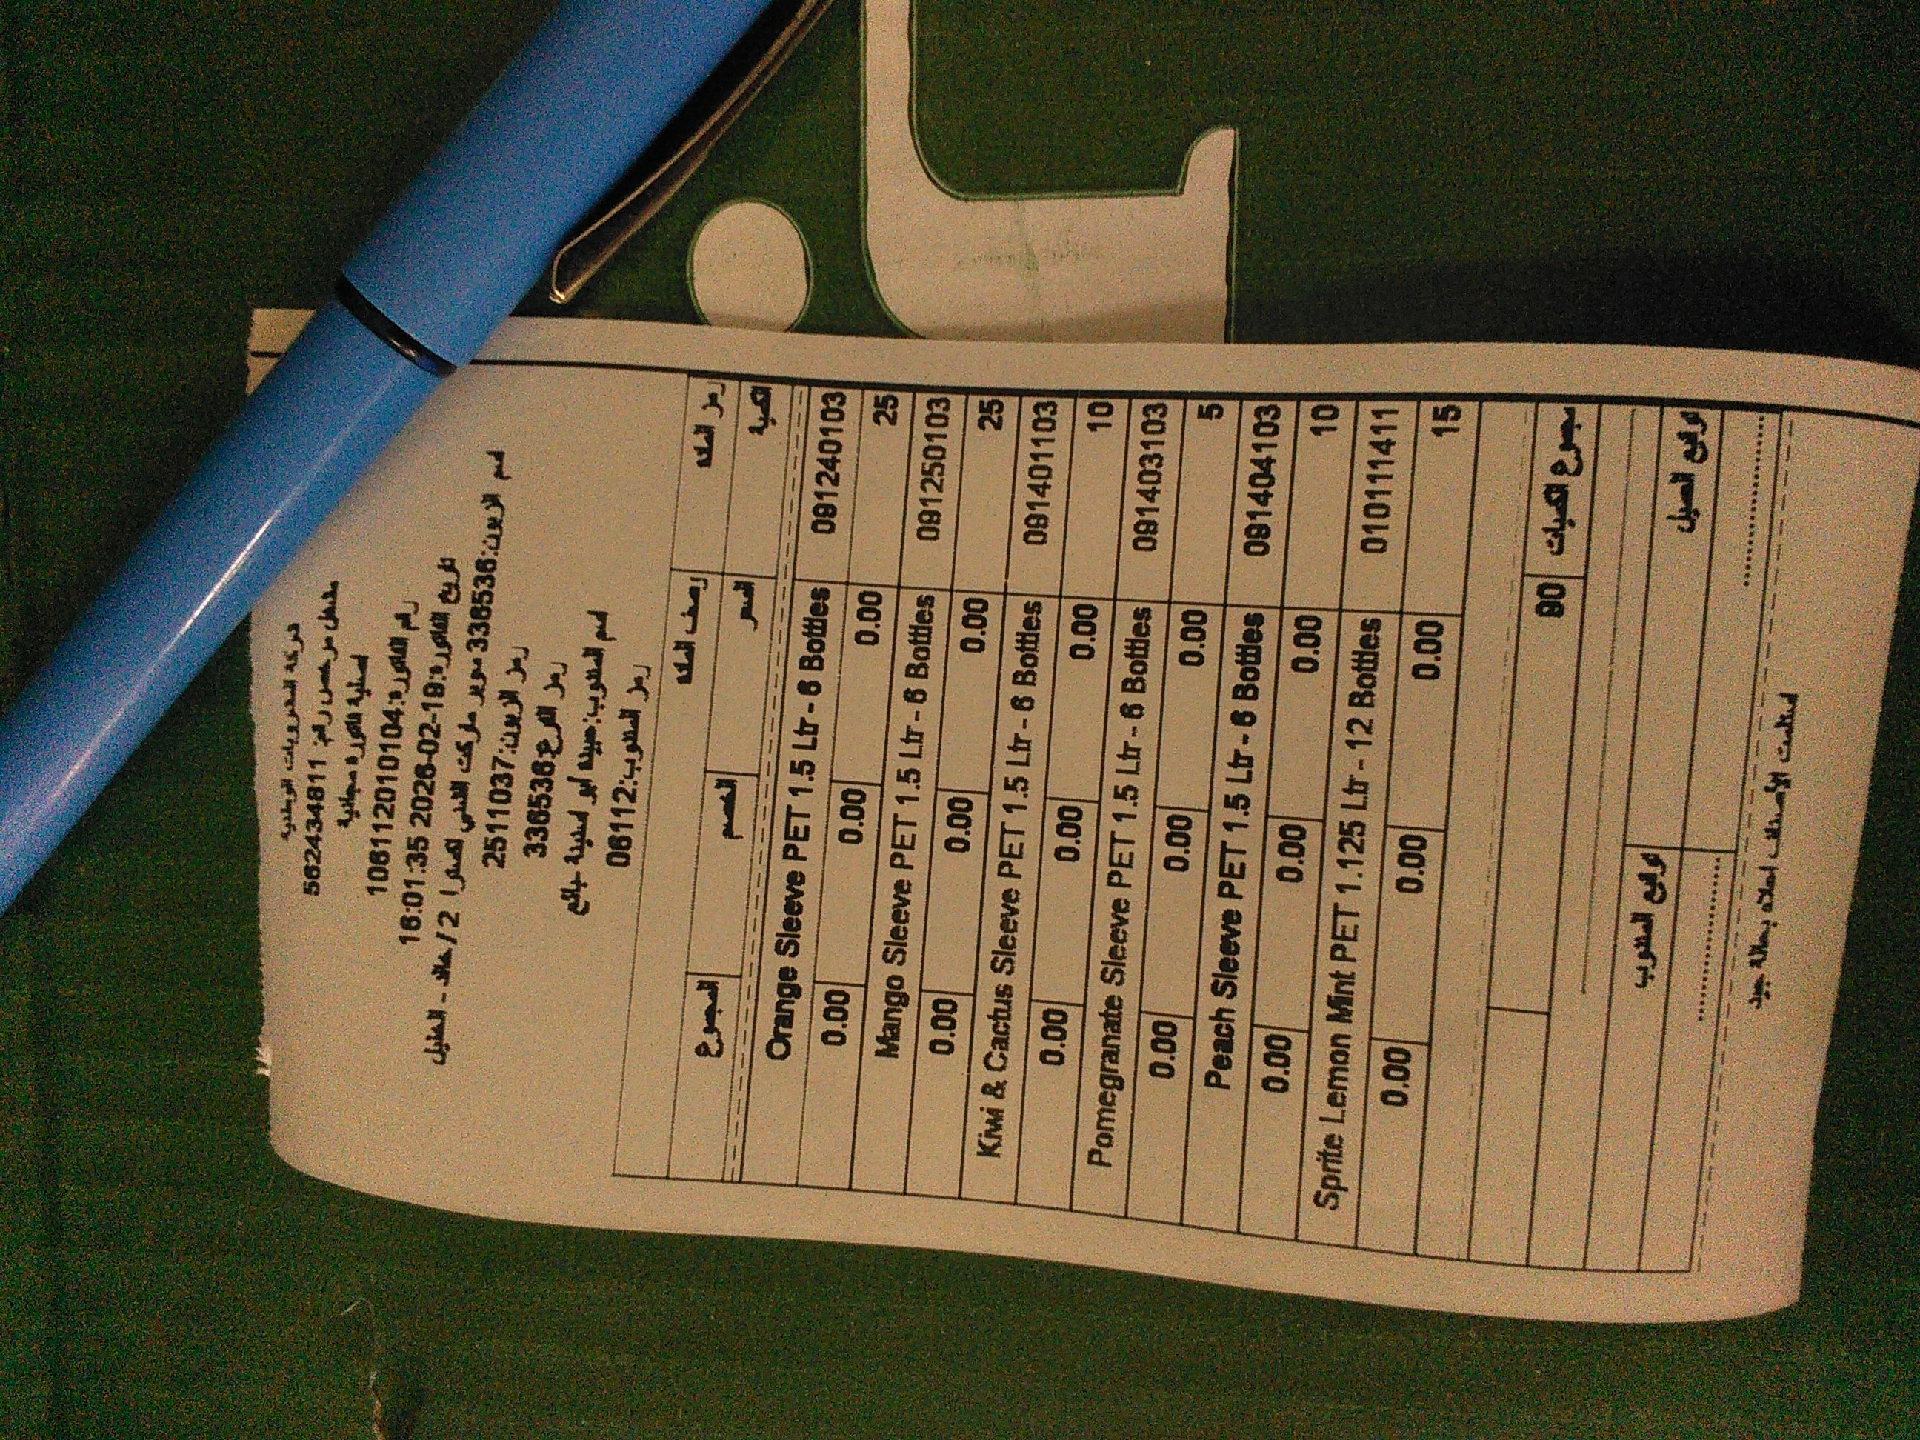 شركة المشروبات الوطنية
مشتغل مرخص رقم: 562434811
إستلامية فاتورة مجانية
رقم الفاتورة:106112010104
تاريخ الفاتورة:19-02-2026 16:01:35
اسم الزبون:3365536 سوبر ماركت
رمز الزبون:2511037
رمز الفرع:3365536
اسم المندوب:
رمز المندوب:06112
رمز السلعة وصف السلعة
الكمية السعر الخصم المجموع
0912240103 Orange Sleeve PET 1.5 Ltr - 6 Bottles
25 0.00 0.00 0.00
0912250103 Mango Sleeve PET 1.5 Ltr - 6 Bottles
25 0.00 0.00 0.00
0914011103 Kiwi & Cactus Sleeve PET 1.5 Ltr - 6 Bottles
10 0.00 0.00 0.00
0914031103 Pomegranate Sleeve PET 1.5 Ltr - 6 Bottles
5 0.00 0.00 0.00
0914041103 Peach Sleeve PET 1.5 Ltr - 6 Bottles
10 0.00 0.00 0.00
0101111411 Sprite Lemon Mint PET 1.125 Ltr - 12 Bottles
15 0.00 0.00 0.00
مجموع الكميات 90
توقيع العميل توقيع المندوب
استلمت الأصناف اعلاه بحالة جيد